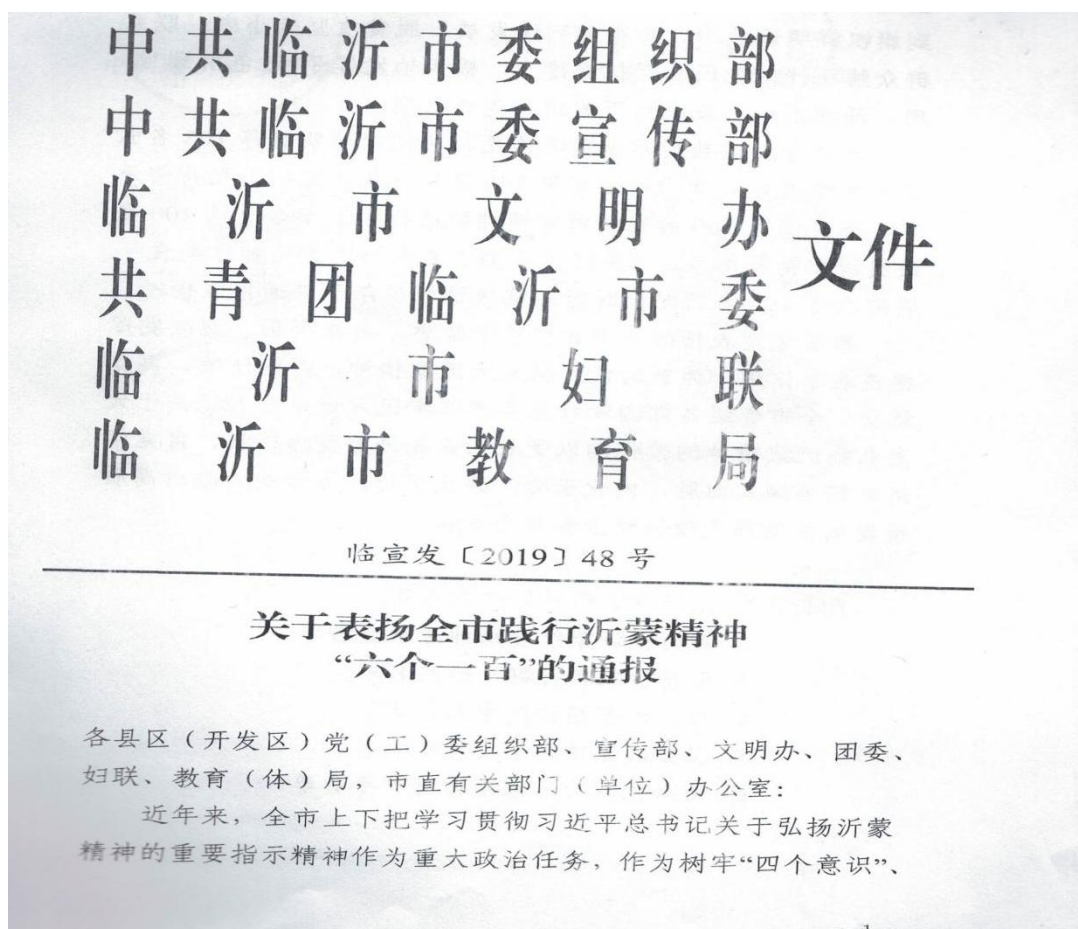 中共临沂市委组织部
中共临沂市委宣传部
临沂市文明办
共青团临沂市委
临沂市妇联
临沂市教育局
文件
临宣发〔2019〕48号
关于表扬全市践行沂蒙精神
“六个一百”的通报
各县区（开发区）党（工）委组织部、宣传部、文明办、团委、
妇联、教育（体）局，市直有关部门（单位）办公室：
近年来，全市上下把学习贯彻习近平总书记关于弘扬沂蒙
精神的重要指示精神作为重大政治任务，作为树牢“四个意识”、